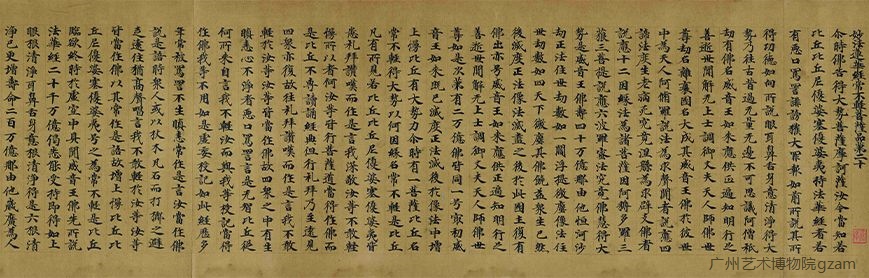 妙法蓮華經常不輕菩薩品第二十
尒時佛告得大勢菩薩摩訶薩汝今當知若
比丘比丘尼優婆塞優婆夷持法華經者若
有惡口罵詈誹謗獲大罪報如前所說其所
得功德如向所說眼耳鼻舌身意清淨得大
勢乃往古昔過无量无邊不可思議阿僧祇
劫有佛名威音王如來應供正遍知明行足
善逝世間解无上士調御丈夫天人師佛世
尊劫名離衰國名大成其威音王佛於彼世
中為天人阿脩羅說法為求聲聞者說應四
諦法度生老病死究竟涅槃為求辟支佛者
說應十二因緣法為諸菩薩因阿耨多羅三
藐三菩提說應六波羅蜜法究竟佛慧得大
勢是威音王佛壽四十萬億那由他恒河沙
劫正法住世劫數如一閻浮提微塵像法住
世劫數如四天下微塵其佛饒益眾生已然
後滅度正法像法滅盡之後於此國土復有
佛出亦号威音王如來應供正遍知明行足
善逝世間解无上士調御丈夫天人師佛世
尊如是次第有二萬億佛皆同一号最初威
音王如來既已滅度正法滅後於像法中增
上慢比丘有大勢力尒時有一菩薩比丘名
常不輕得大勢以何因緣名常不輕是比丘
凡有所見若比丘比丘尼優婆塞優婆夷皆
悉礼拜讚嘆而作是言我深敬汝等不敢輕
慢所以者何汝等皆行菩薩道當得作佛而
是比丘不專讀誦經典但行礼拜乃至遠見
四眾亦復故往礼拜讚嘆而作是言我不敢
輕於汝等汝等皆當作佛故四眾之中有生
瞋恚心不淨者惡口罵詈言是无智比丘從
何所來自言我不輕汝而與我等授記當得
作佛我等不用如是虛妄授記如此經歷多
年常被罵詈不生瞋恚常作是言汝當作佛
說是語時眾人或以杖木瓦石而打擲之避
走遠住猶高聲唱言我不敢輕於汝等汝等
皆當作佛以其常作是語故增上慢比丘比
丘尼優婆塞優婆夷号之為常不輕是比丘
臨欲終時於虛空中具聞威音王佛先所說
法華經二十千萬億偈悉能受持即得如上
眼根清淨耳鼻舌身意根清淨得是六根清
淨已更增壽命二百萬億那由他歲廣為人
广州艺术博物院gzam